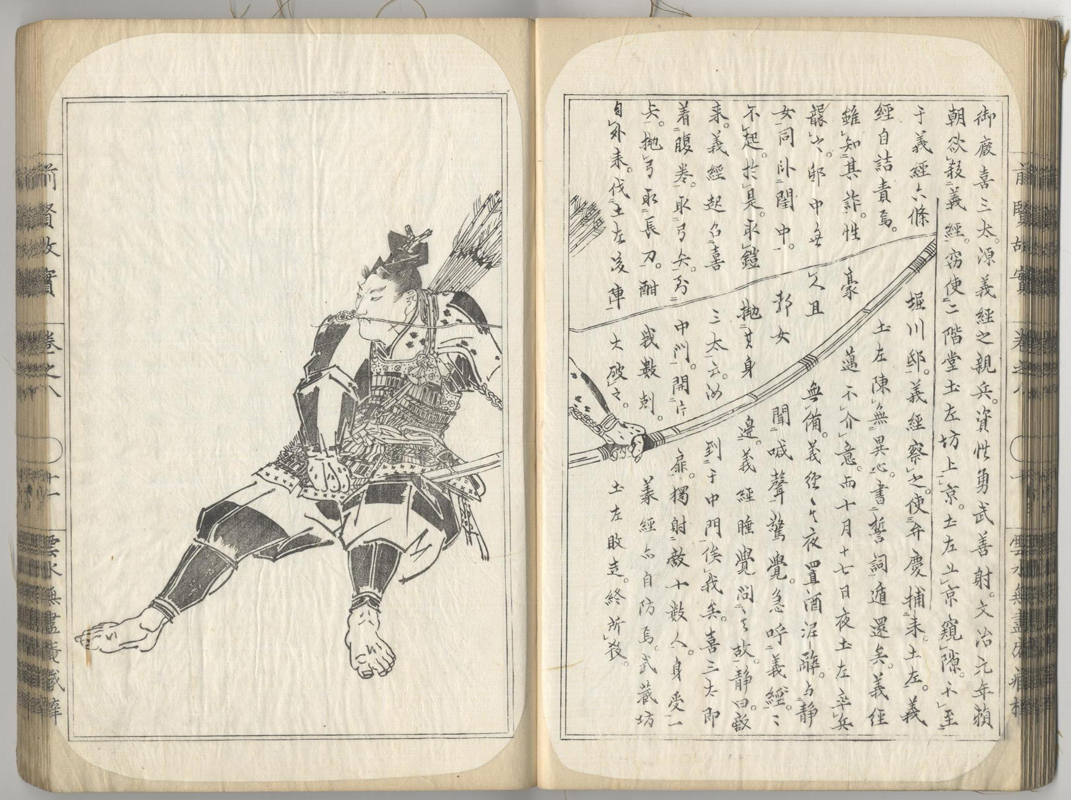 前賢故實 卷之八
御廐喜三太。源義經之親兵。資性勇武善射。文治元年頼
朝欲殺義經。窃使二階堂土左坊上京。土左上京窺隙。不至
于義經六條堀川邸。義經察之。使弁慶捕来土左。義
經自詰責焉。土左陳無異心。書誓詞遁還矣。義經
雖知其詐。性豪邁不介意。而十月十七日夜土左率兵
襲之。邸中無人且無備。義經今夜置酒泥酔。与静
女同卧閨中。女聞喊聲驚覺。急呼義經。〻
不起。於是取鎧抛其身邊。義經睡覺問之故。静曰敵
来。義經起召喜三太云。汝到于中門俟我矣。喜三太即
着腹卷。取弓矢。中門。開片扉。獨射敵十数人。身受一
矢。抛弓取長刀。酣戦数刻。義經亦自防焉。武蔵坊
自外来。伐土左後陣大破之。土左敗走。終所殺。
前賢故實 卷之八 十一 雲水無盡庵藏梓